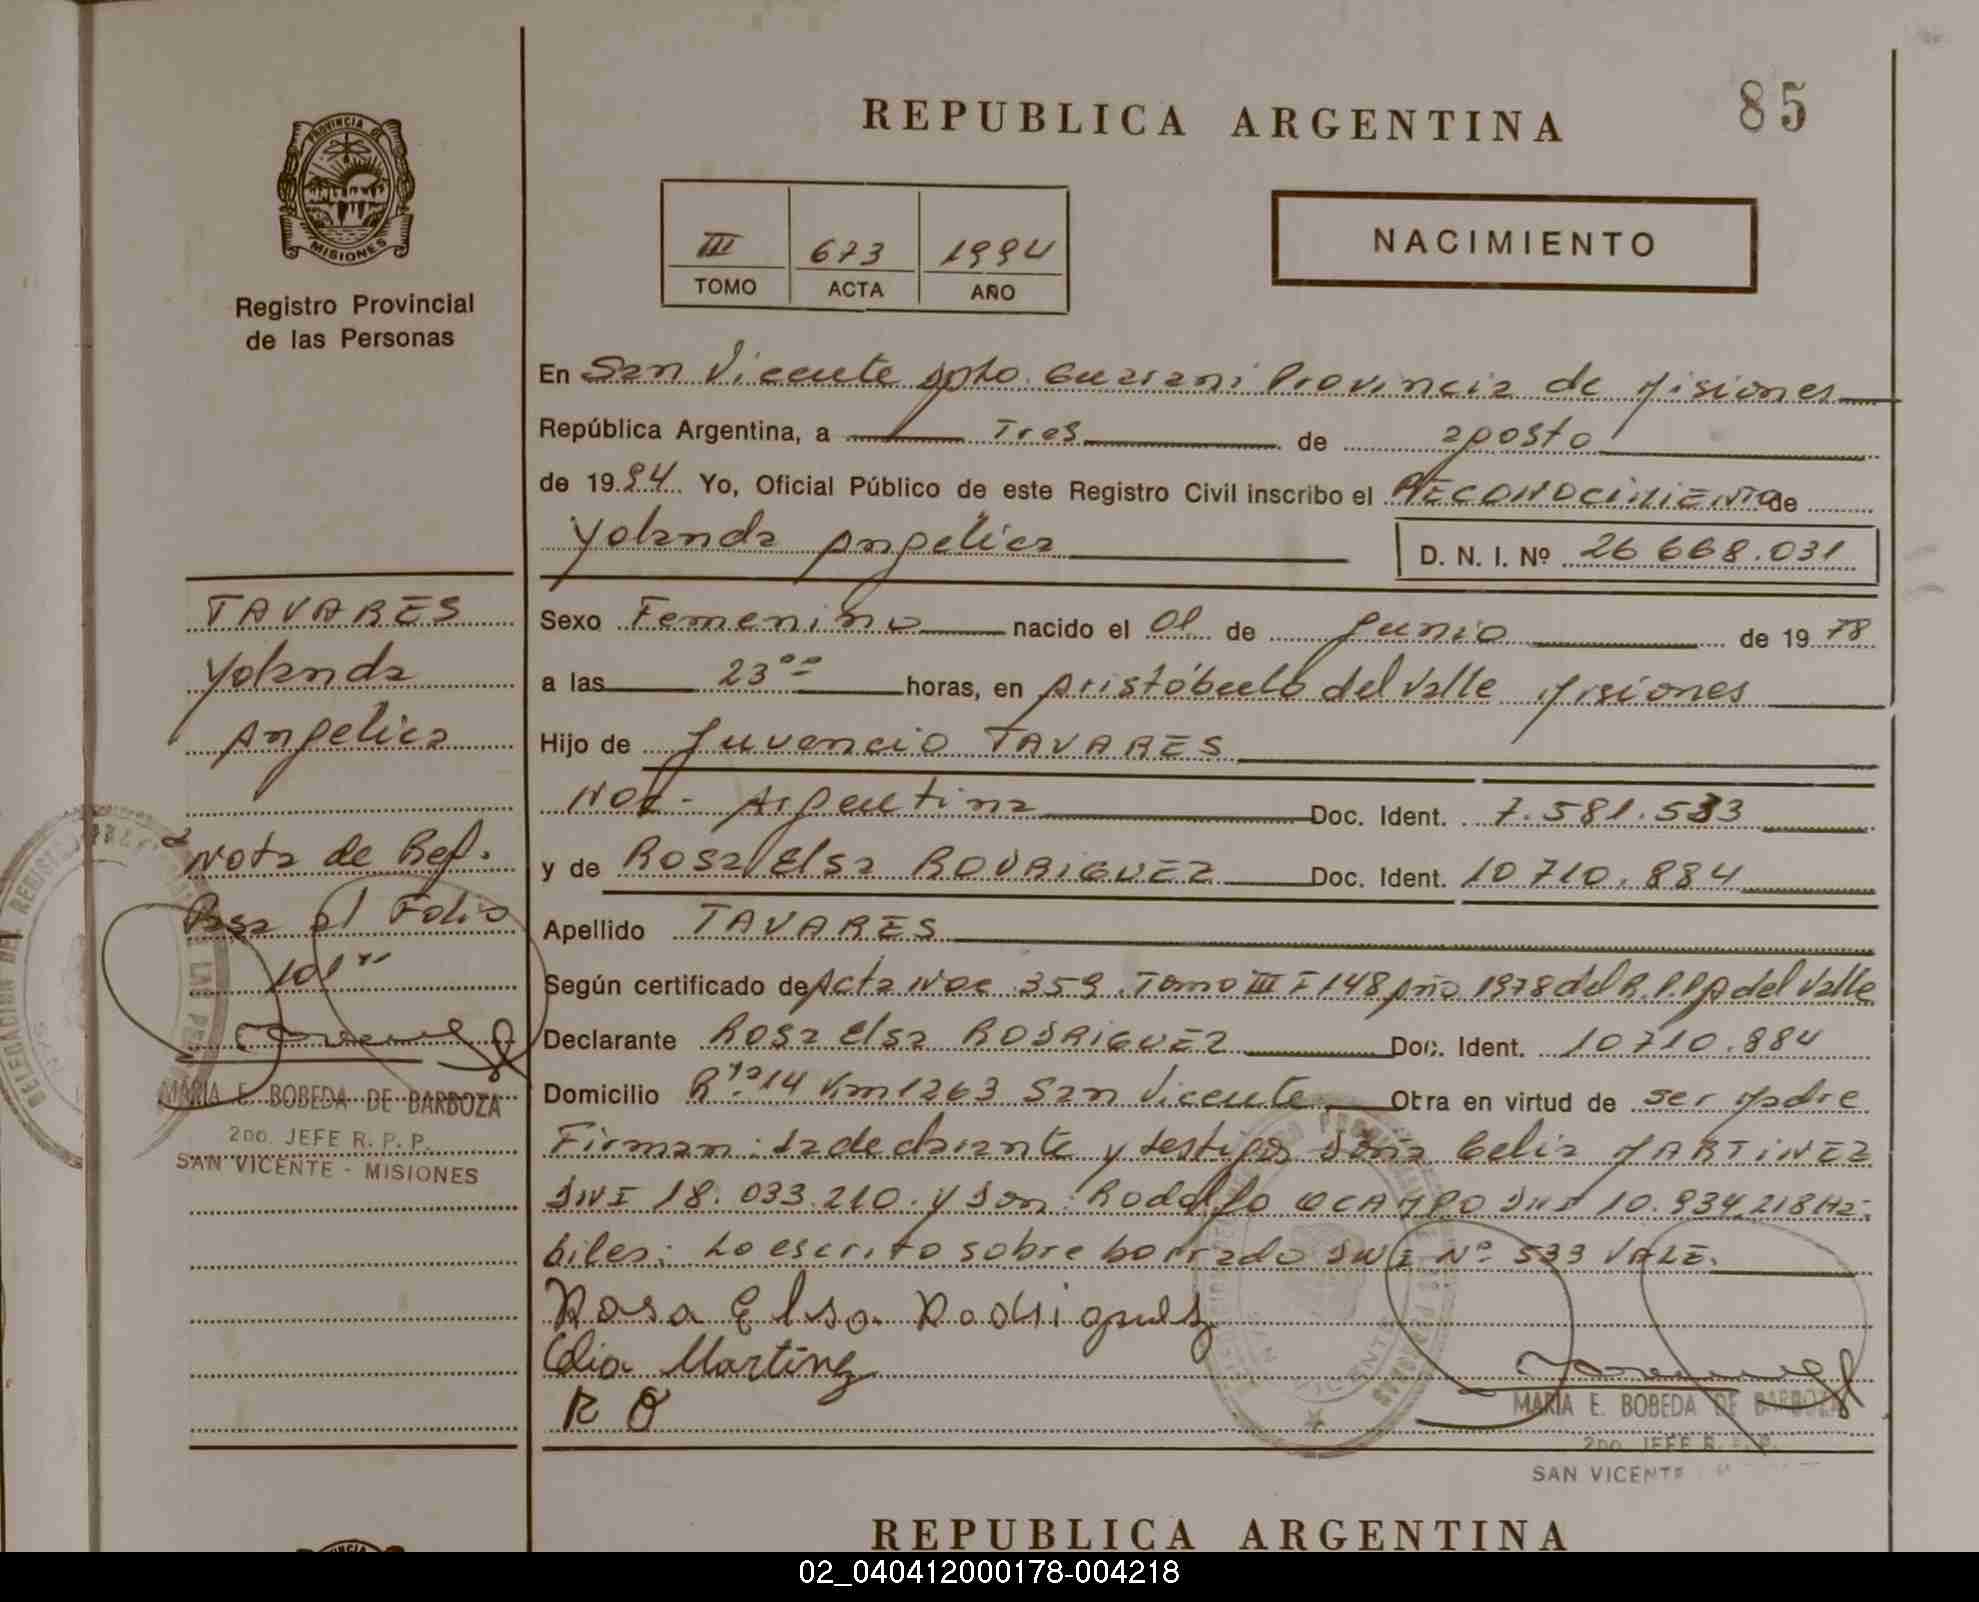 85
REPUBLICA ARGENTINA
NACIMIENTO
III 673 1994
TOMO ACTA AÑO
PROVINCIA DE
MISIONES
Registro Provincial
de las Personas
TAVARES
Yolanda
Angelica
Nota de Ref.
Pasa al Folio
101
MARIA E. BOBEDA DE BARBOZA
2DO. JEFE R. P. P.
SAN VICENTE - MISIONES
En San Vicente Dpto. Guarani Provincia de Misiones
República Argentina, a Tres de agosto
de 1994. Yo, Oficial Público de este Registro Civil inscribo el RECONOCIMIENTO de
Yolanda Angélica D. N. I. Nº 26 668.031
Sexo Femenino nacido el 01 de Junio de 1978
a las 23°° horas, en Aristóbulo del Valle Misiones
Hijo de Juvencio TAVARES
Nac- Argentina Doc. Ident. 7.581.533
y de Rosa Elsa RODRIGUEZ Doc. Ident. 10 710.884
Apellido TAVARES
Según certificado de Acta Nac 359 Tomo III F 148 Año 1978 del R.P.P A del Valle
Declarante Rosa Elsa RODRIGUEZ Doc. Ident. 10710.884
Domicilio R 14 Km 1263 San Vicente Otra en virtud de ser Madre
Firman: La declarante y testigos Doña Celia MARTINEZ
DNI 18.033.210. y Don: Rodolfo OCAMPO DNI 10.934.218 Há-
biles: Lo escrito sobre borrado DNI Nº 533 VALE.
Rosa Elsa Rodriguez
Celia Martinez
R O
MARIA E. BOBEDA DE BARBOZA
2DO. JEFE R. P. P.
SAN VICENTE
REPUBLICA ARGENTINA
02_040412000178-004218